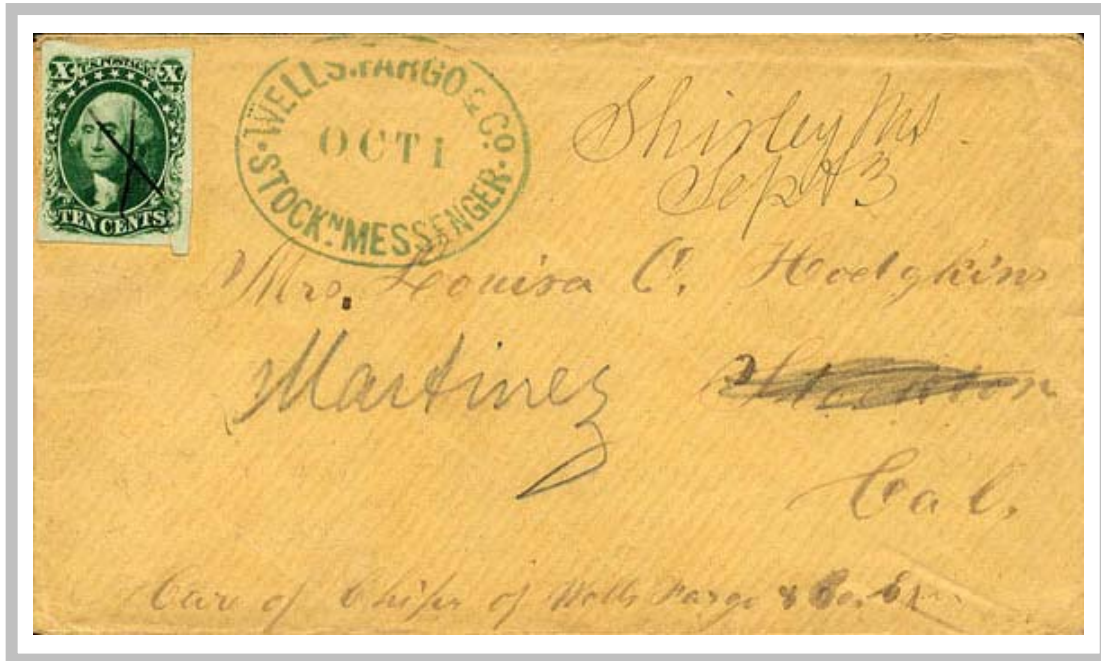 X U.S. POSTAGE X
TEN CENTS
WELLS, FARGO & CO.
OCT 1
STOCKN. MESSENGER.
Shirley Ms
Sept 3
Mrs. Louisa C. Hodgkins
Martinez Stockton
Cal.
Care of of Wells Fargo & Co. Ex